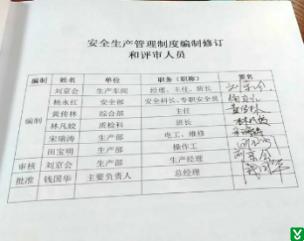 安全生产管理制度编制修订
和评审人员
编制 姓名 单位 职务（职称） 签名
刘京会 生产车间 经理、主任、班长
杨永红 安全部 安全科长、专职安全员
黄传林 综合部 主任
林凡姣 质检科 班长
宋瑞涛 生产部 电工、维修
田宝明 生产部 操作工
审核 刘京会 生产部 生产经理
批准 钱国华 主要负责人 总经理